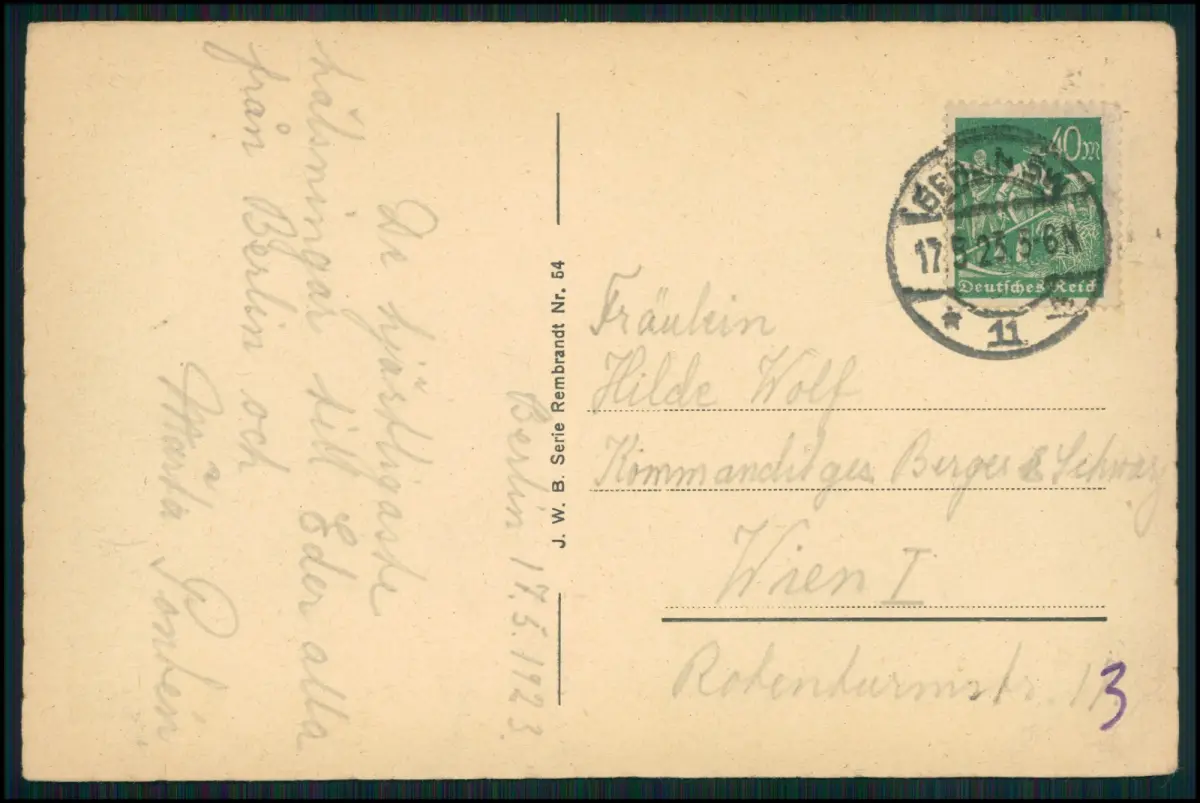 Berlin 17.5.1923.
De hjärtligaste
hälsningar till Eder alla
från Berlin och
Märta
J. W. B. Serie Rembrandt Nr. 54
40 M
Deutsches Reich
BERLIN SW
17.5.23.5-6N
* 11
Fräulein
Hilde Wolf
Kommanditges Berger & Schwarz
Wien I
Rotenturmstr.
3